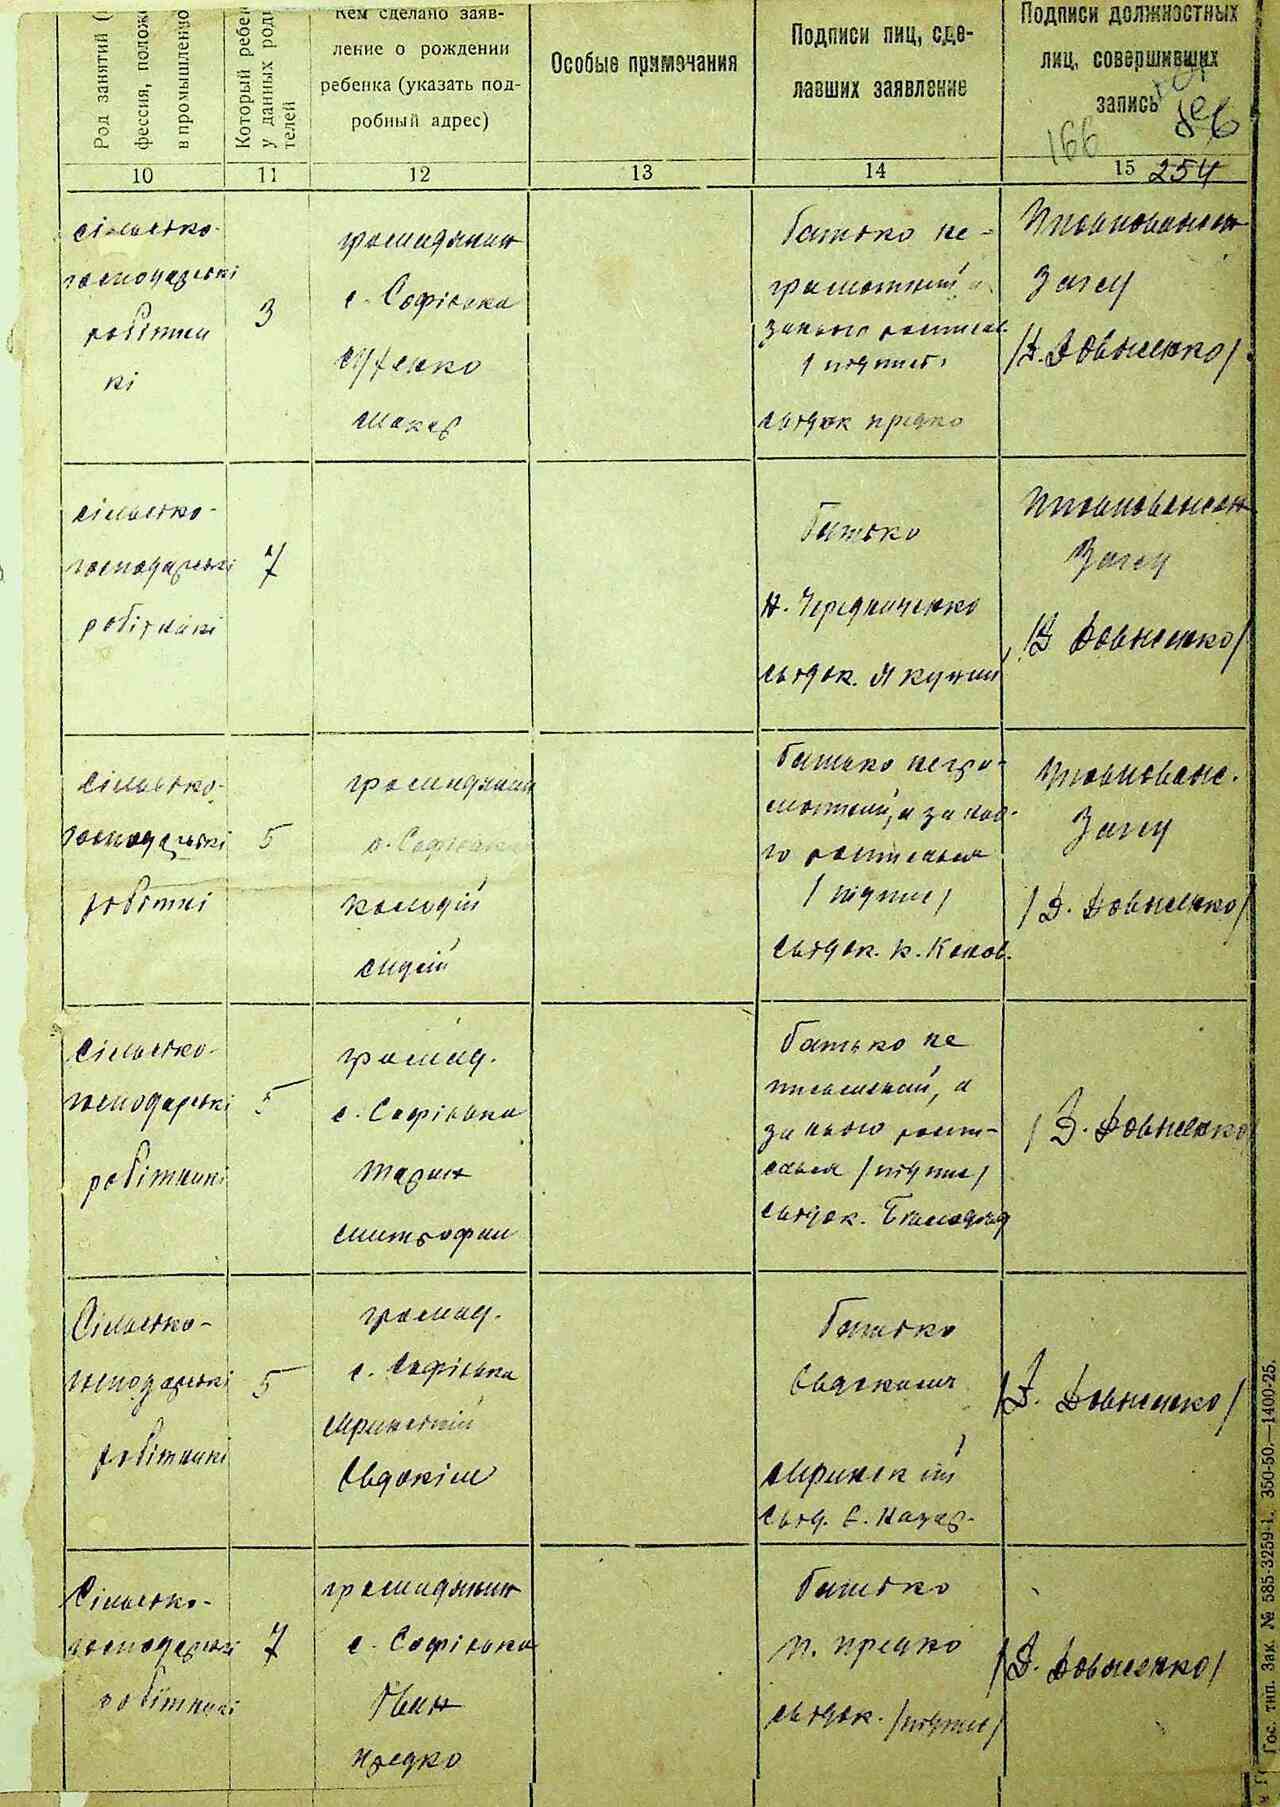 Род занятий (
фессия, полож
в промышленно
Который ребен
у данных роди
телей
Кем сделано заяв-
ление о рождении
ребенка (указать под-
робный адрес)
Особые примечания
Подписи лиц, сде-
лавших заявление
Подписи должностных
лиц, совершивших
запись
166
10
11
12
13
14
15
254
сільсько-
господарські
робітни
кі
3
громадянин
с. Софіевка
Макар
батько не-
грамотний а
за нього росписав.
/підпис/
свідок Предко
Уповноважен
Загсу
/В. Довженко/
сільсько-
господарські
робітникі
7
батько
Н. Чередниченко
свідок. Якунин
Уповноважен
Загсу
/В Довженко/
сільсько-
господарські
робітникі
5
громадянин
с. Софіевка
Колодій
Сидій
батько негра-
мотний, а за ньо-
го росписался
/підпис/
свідок. К. Конов.
Уповноваж.
Загсу
/В. Довженко/
Сільсько-
господарські
робітникі
5
громад.
с. Софіевка
Таран
Митрофан
батько не
письменый, а
за нього роспи-
сался /підпис/
свідок.
/В. Довженко
Сільсько-
господарські
робітникі
5
громад.
с. Софіевка
Мринский
Євдокім
батько
Євдоким
Мринский
свід. Є. Назар.
/В. Довженко/
Сільсько-
господарські
робітникі
7
громадянин
с. Софіевка
Іван
Предко
батько
И. Предко
свідок. /підпис/
/В. Довженко/
Гос. тип. Зак. № 585-3259-1. 350-50.—1400-25.